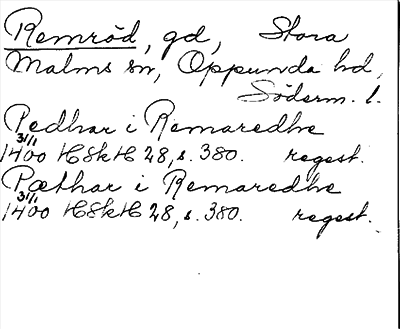 Remröd, gd, Stora
Malms sn, Oppunda hd,
Söderm. l.
Pedhar i Remaredhe
31/1
1400 HSkH 28, s. 380. regest.
Pæthar i Remaredhe
31/1
1400 HSkH 28, s. 380. regest.